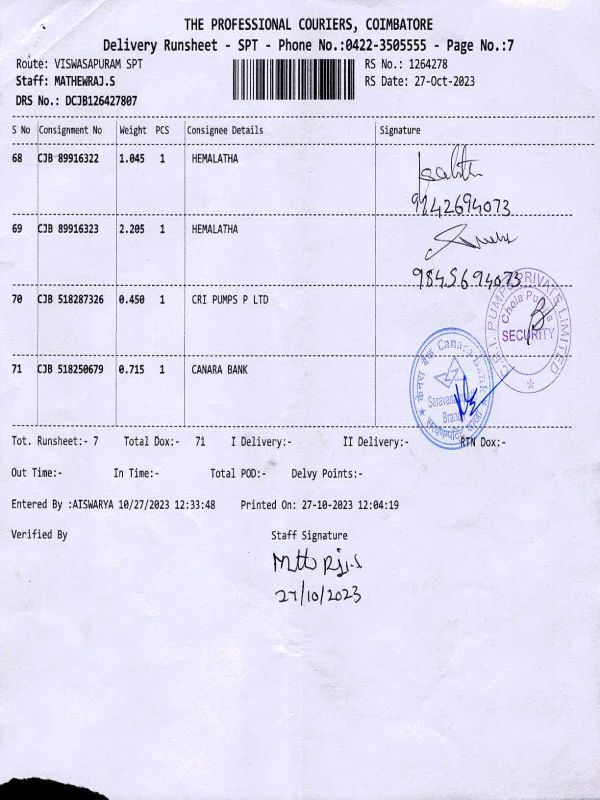 THE PROFESSIONAL COURIERS, COIMBATORE
Delivery Runsheet - SPT - Phone No.:0422-3505555 - Page No.:7
Route: VISWASAPURAM SPT RS No.: 1264278
Staff: MATHEWRAJ.S RS Date: 27-Oct-2023
DRS No.: DCJB126427807
S No Consignment No Weight PCS Consignee Details Signature
68 CJB 89916322 1.045 1 HEMALATHA
9742694073
69 CJB 89916323 2.205 1 HEMALATHA
9845694073
70 CJB 518287326 0.450 1 CRI PUMPS P LTD
C.R.I. PUMPS PRIVATE LIMITED
Chola Pumps
SECURITY
71 CJB 518250679 0.715 1 CANARA BANK
केनरा बैंक Canara Bank
Branch
Tot. Runsheet:- 7 Total Dox:- 71 I Delivery:- II Delivery:- RTN Dox:-
Out Time:- In Time:- Total POD:- Delvy Points:-
Entered By :AISWARYA 10/27/2023 12:33:48 Printed On: 27-10-2023 12:04:19
Verified By Staff Signature
27/10/2023